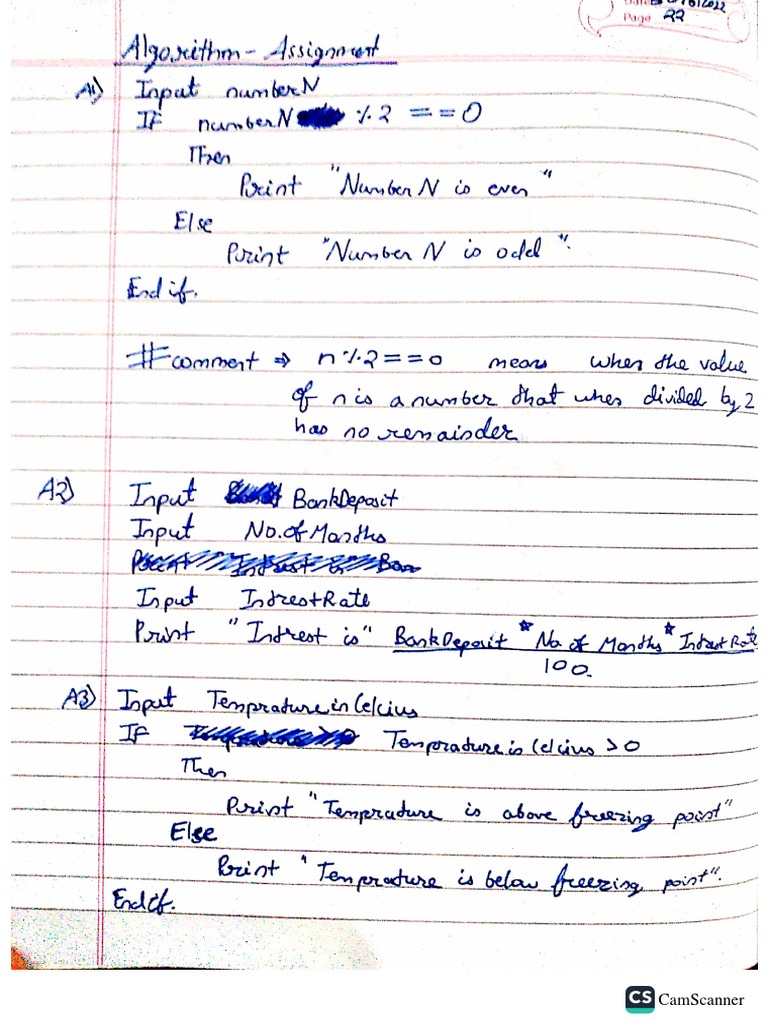 Page 22
Algorithm - Assignment
A1) Input numberN
IF numberN % 2 == 0
Then
Print "Number N is even"
Else
Print "Number N is odd".
End if.
#comment ⇒ n % 2 == 0 means when the value
of n is a number that when divided by 2
has no remainder
A2) Input BankDeposit
Input No. of Months
Input IntrestRate
Print "Intrest is" BankDeposit * No. of Months * IntrestRate
100.
A3) Input Temprature in Celcius
IF Temprature in Celcius > 0
Then
Print "Temprature is above freezing point"
Else
Print "Temprature is below freezing point".
End if.
CS CamScanner